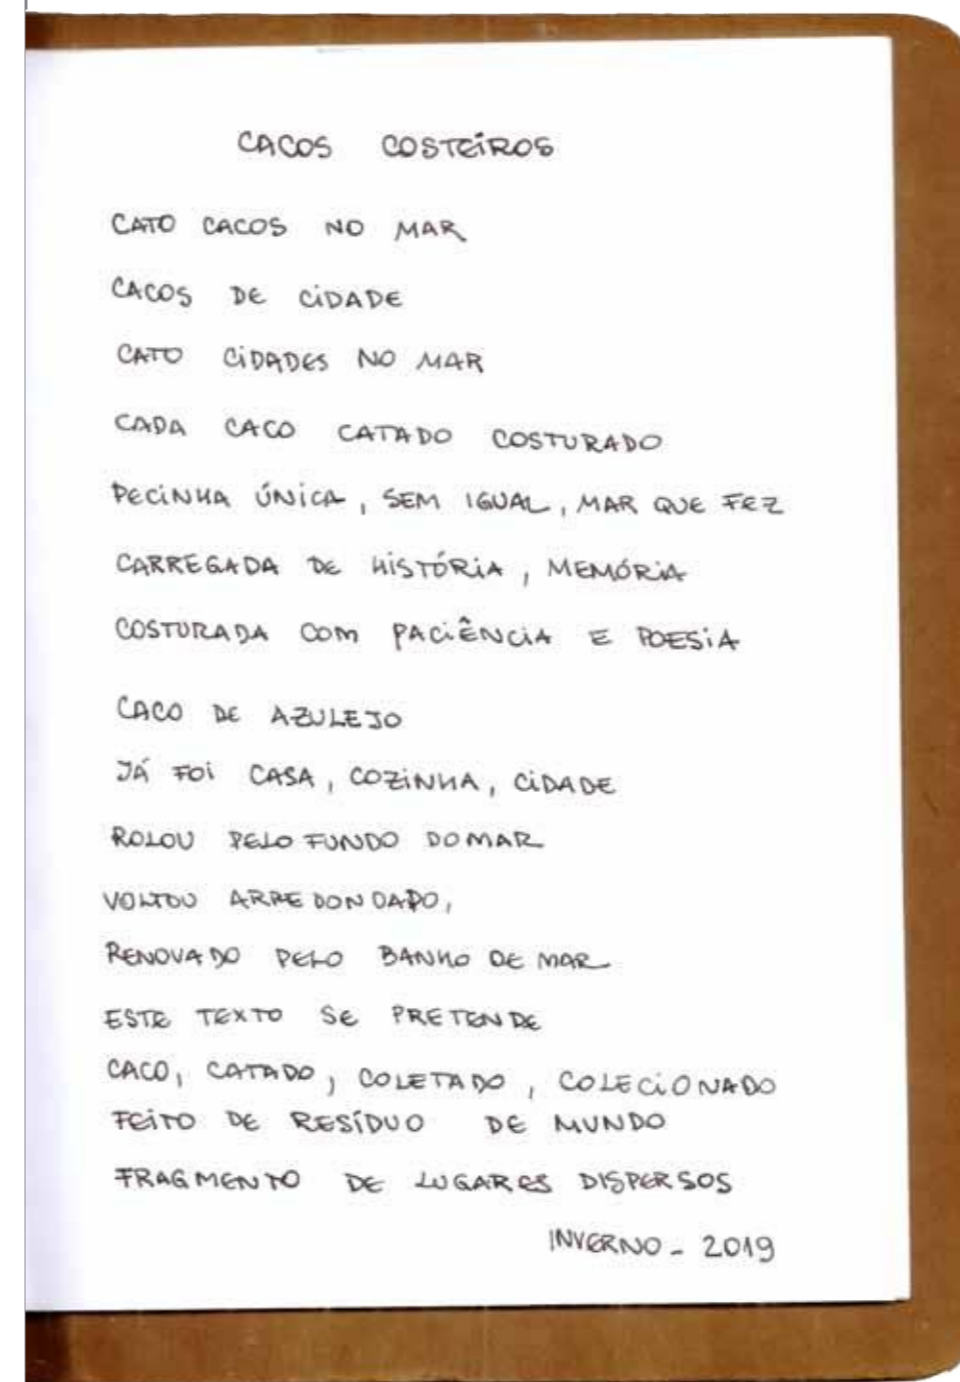 CACOS COSTEIROS
CATO CACOS NO MAR
CACOS DE CIDADE
CATO CIDADES NO MAR
CADA CACO CATADO COSTURADO
PECINHA ÚNICA, SEM IGUAL, MAR QUE FEZ
CARREGADA DE HISTÓRIA, MEMÓRIA
COSTURADA COM PACIÊNCIA E POESIA
CACO DE AZULEJO
JÁ FOI CASA, COZINHA, CIDADE
ROLOU PELO FUNDO DO MAR
VOLTOU ARREDONDADO,
RENOVADO PELO BANHO DE MAR
ESTE TEXTO SE PRETENDE
CACO, CATADO, COLETADO, COLECIONADO
FEITO DE RESÍDUO DE MUNDO
FRAGMENTO DE LUGARES DISPERSOS
INVERNO - 2019